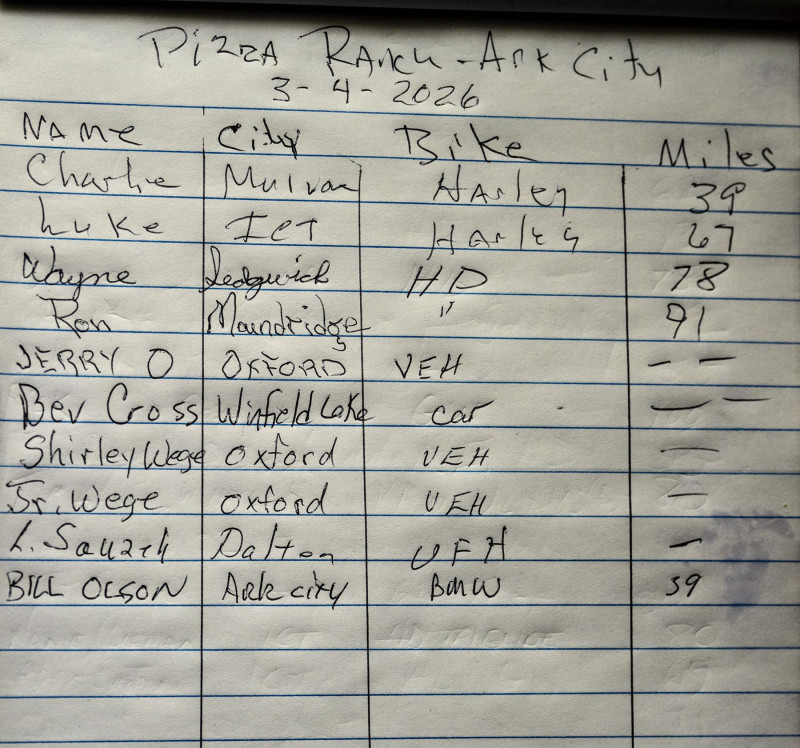 Pizza Ranch - Ark City
3-4-2026
Name City Bike Miles
Charlie Mulvan Harley 39
Luke ICT Harley 67
Wayne Sedgwick HD 78
Ron Moundridge " 91
JERRY O OXFORD VEH — —
Bev Cross Winfield Lake car — —
Shirley Wege Oxford VEH —
Jr. Wege Oxford VEH —
L. Dalton VEH —
BILL OLSON Ark city BMW 59